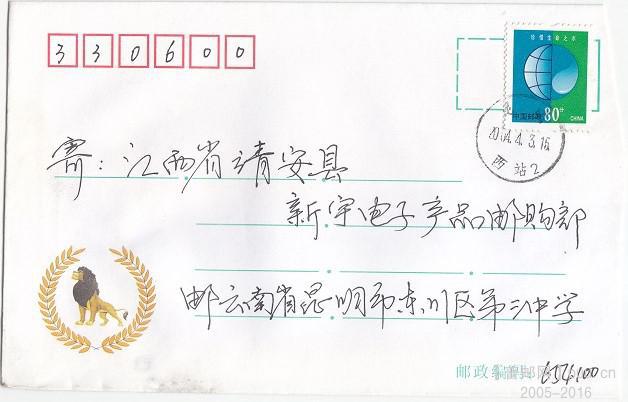 330600
珍惜生命之水
中国邮政 80分 CHINA
2004.4.3.16
西站2
寄:江西省靖安县
新宇电子产品邮购部
邮云南省昆明市东川区第二中学
邮政编码: 654100
2005-2016